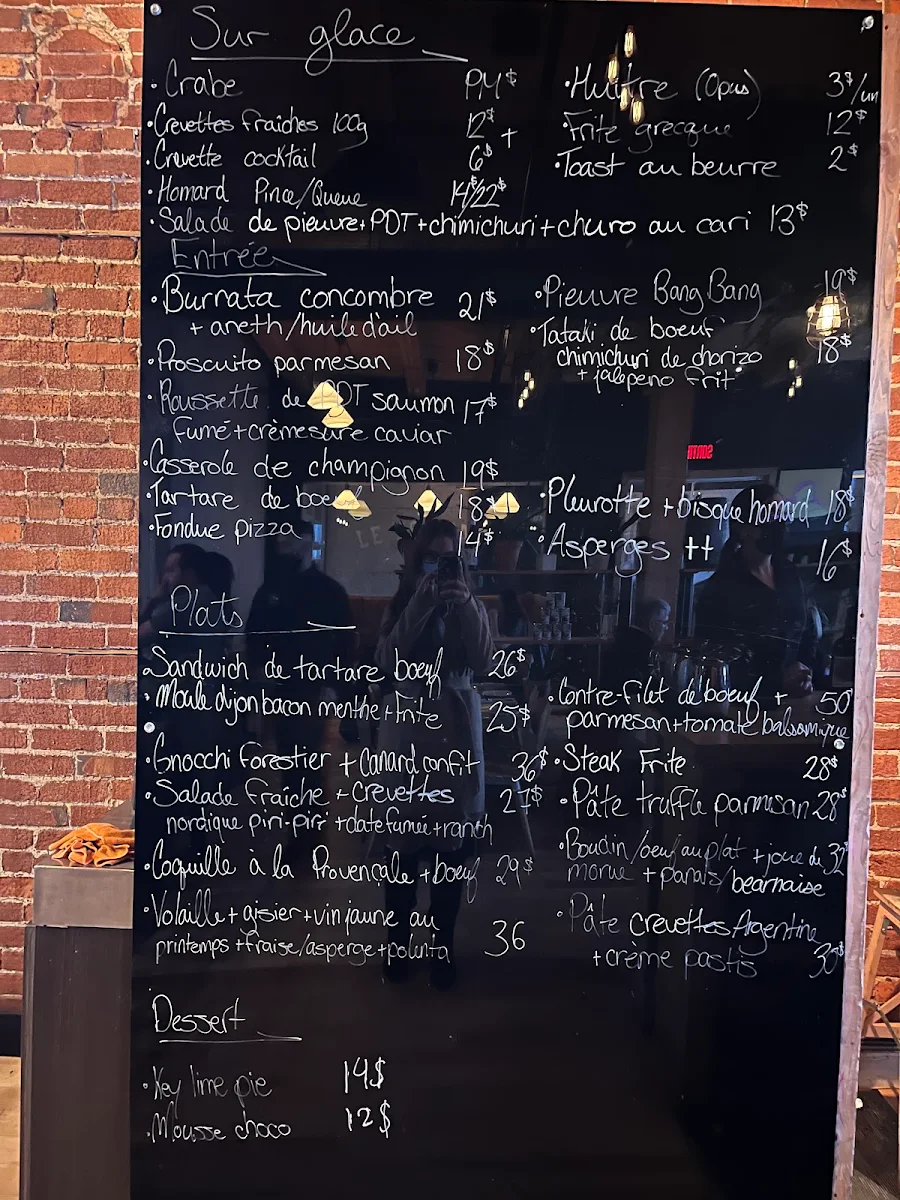 Sur glace
• Crabe PM$
• Crevettes fraîches 100g 12$ +
• Crevette cocktail 6$
• Homard Pince/Queue 14$/22$
• Huître (Opus) 3$/un
• Frite grecque 12$
• Toast au beurre 2$
• Salade de pieuvre+PDT+chimichuri+churo au cari 13$
Entrée
• Burrata concombre 21$
+ aneth/huile d'ail
• Proscuito parmesan 18$
• Roussette de PDT saumon 17$
fumé+crèmesure caviar
• Casserole de champignon 19$
• Tartare de boeuf 18$
• Fondue pizza 14$
• Pieuvre Bang Bang 19$
• Tataki de boeuf
chimichuri de chorizo 18$
+ jalepeno frit
• Pleurotte + bisque homard 18$
• Asperges ++ 16$
SORTIE
LE
Plats
• Sandwich de tartare boeuf 26$
• Moule dijon bacon menthe+Frite 25$
• Gnocchi forestier + Canard confit 36$
• Salade fraîche + Crevettes 27$
nordique piri-piri + datte fumée + ranch
• Coquille à la Provençale + boeuf 29$
• Volaille + gisier + vin jaune au
printemps + fraise/asperge+polenta 36
• Contre-filet de boeuf + 50$
parmesan+tomate balsamique
• Steak Frite 28$
• Pâte truffle parmesan 28$
• Boudin/oeuf au plat + joue de 32$
morue + panais/bearnaise
• Pâte crevettes Argentine
+ crème pastis 30$
Dessert
• Key lime pie 14$
• Mousse choco 12$